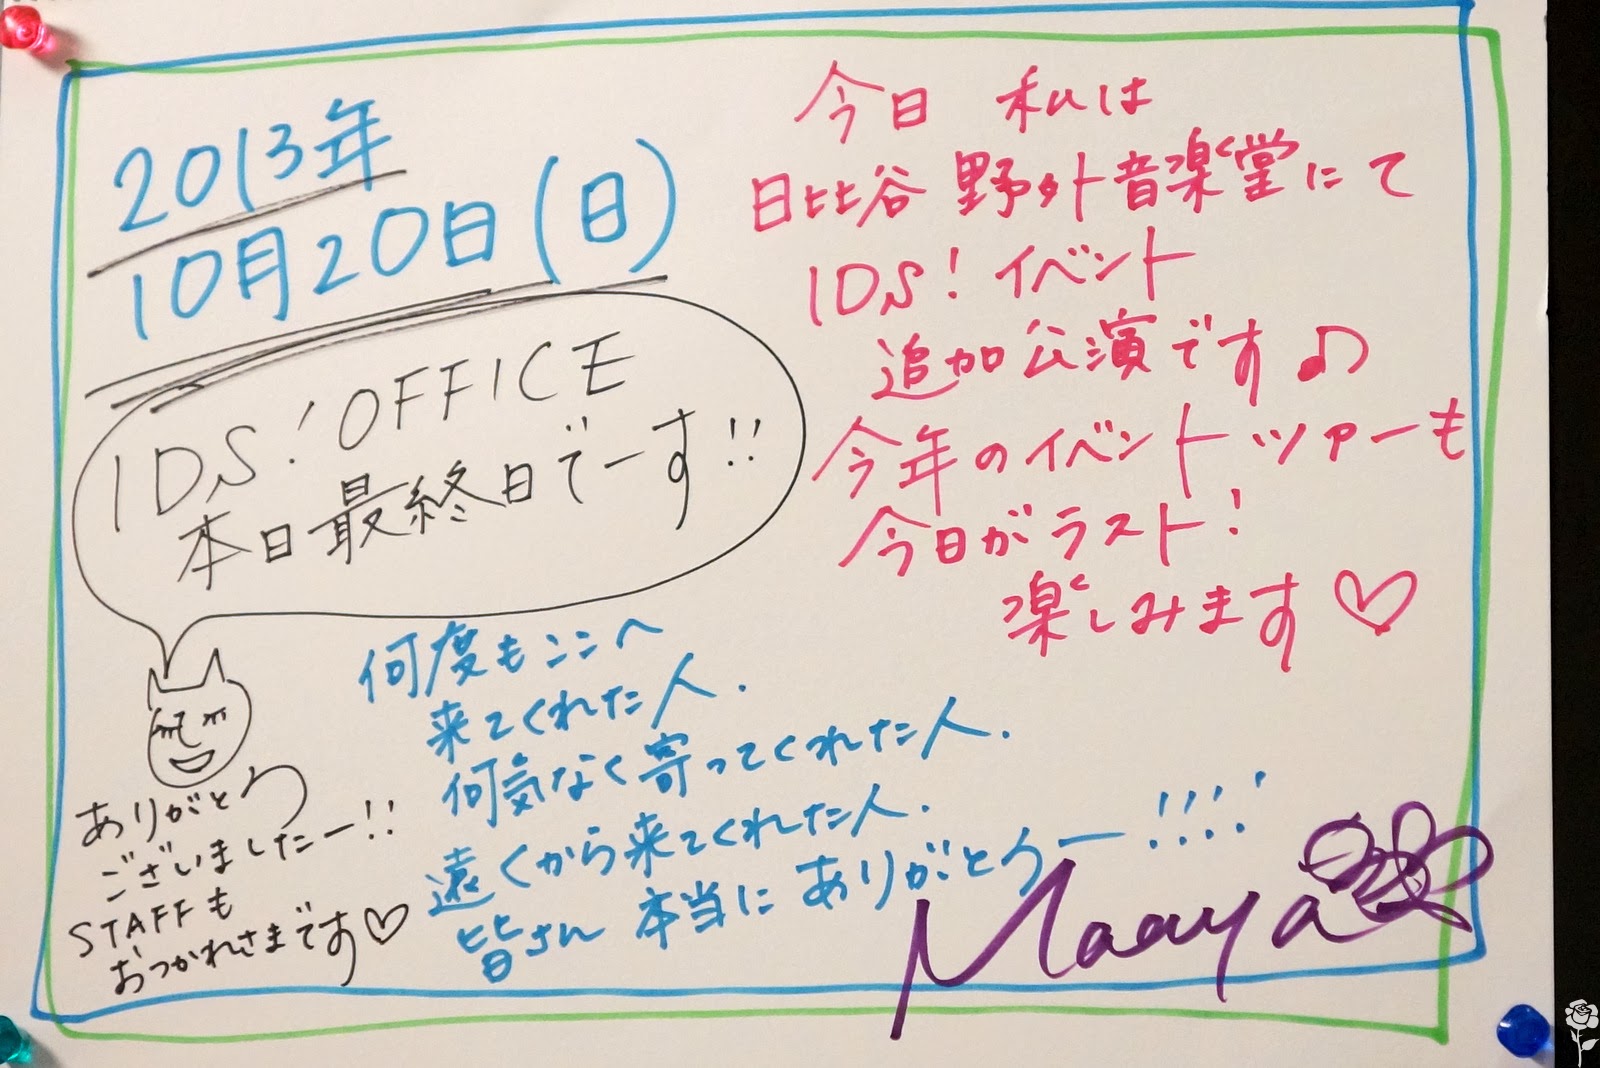 2013年
10月20日(日)
IDS!OFFICE
本日最終日でーす!!
ありがとう
ございましたー!!
STAFFも
おつかれさまです♡
今日 私は
日比谷 野外音楽堂にて
IDS! イベント
追加公演です♪
今年のイベントツアーも
今日がラスト!
楽しみます♡
何度もここへ
来てくれた人.
何気なく寄ってくれた人.
遠くから来てくれた人.
皆さん 本当に ありがとうー!!!!
Maaya